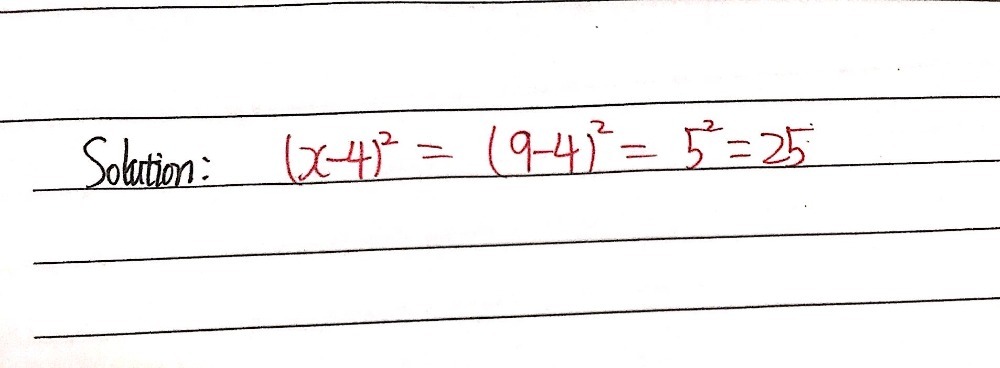 Solution: (x-4)² = (9-4)² = 5² = 25